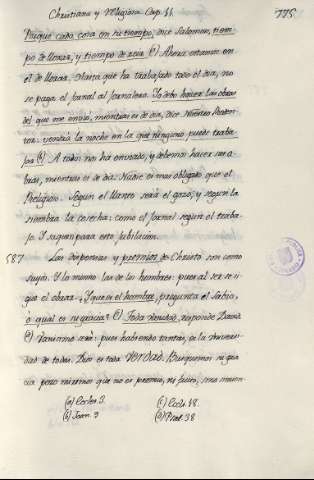 Christiano y Religioso Cap. 11 775
Porque cada cosa en su tiempo, dice Salomon, tiem-
po de llorar, y tiempo de reir (a) Ahora estamos en
el de llorar. Hasta que ha trabajado todo el dia, no
se paga el jornal al jornalero. Yo debo hacer las obras
del que me envió, mientras es de dia, dice Nuestro Reden-
tor: vendrá la noche en la que ninguno puede traba-
jar (b). A todos nos ha enviado, y debemos hacer sus o-
bras, mientras es de dia. Nadie es mas obligado que el
Religioso. Segun el llanto será el gozo, y segun la
siembra la cosecha: como el jornal segun el traba-
jo. Y siguan para esto jubilación.
587 Las disposiciones y premios de Christo son como
suyos. Y lo mismo las de los hombres: pues al ser se si-
gue el obrar. ¿Y que es el hombre, pregunta el Sabio,
o qual es su gracia? (c) Toda vanidad, responde David.
(d) Vanisimo será: pues habiendo tantas, es la universi-
dad de todas. Dios es toda Verdad. Busquemos su gra-
cia pero miremos que no es premio, ni fruto, sino mien-
(a) Eccles. 3. (c) Eccli. 18.
(b) Joan. 9 (d) Psal. 38